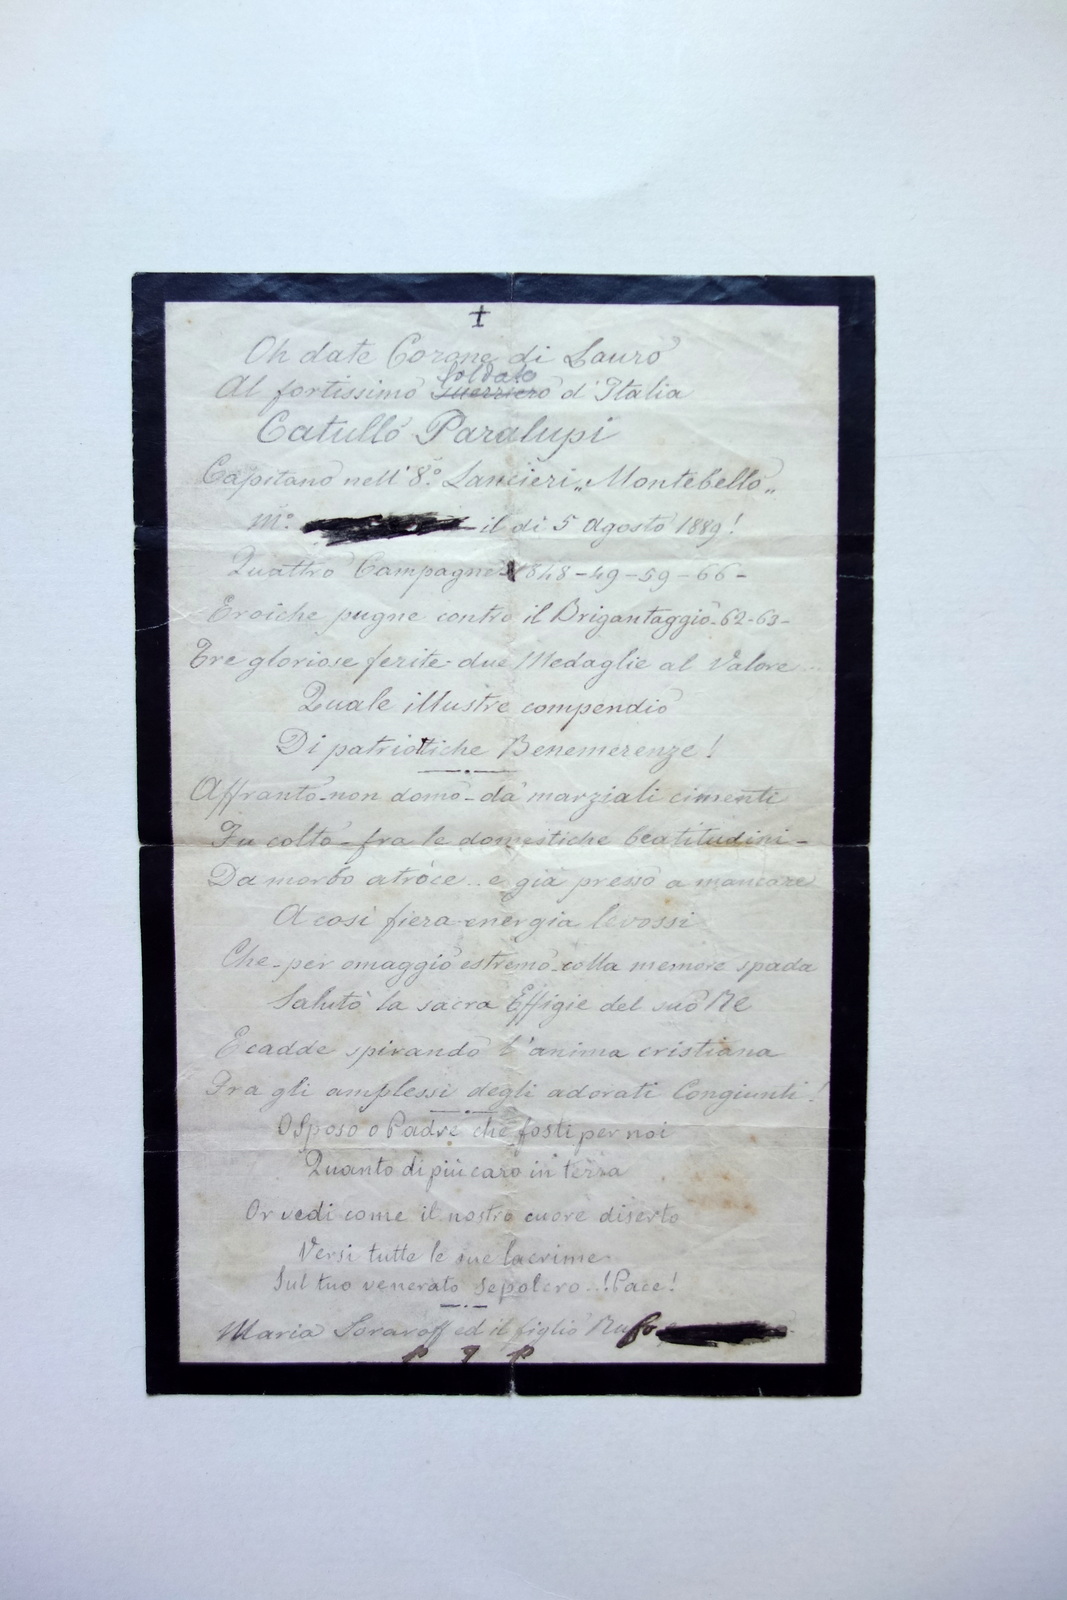 Oh date Corone di Lauro
Soldato
Al fortissimo Guerriero d'Italia
Catullo Paralupi
Capitano nell' 8.° Lancieri „Montebello„
M.° il di 5 Agosto 1889!
Quattro Campagne 1848-49-59-66-
Eroiche pugne contro il Brigantaggio-62-63-
Tre gloriose ferite-due Medaglie al Valore...
Quale illustre compendio
Di patriottiche Benemerenze!
Affranto-non domo-da marziali cimenti
Fu colto-fra le domestiche beatitudini-
Da morbo atroce.. e già presso a mancare
A così fiera energia levossi
Che-per omaggio estremo-colla memore spada
Salutò la sacra Effigie del suo Re
E cadde spirando l'anima cristiana
Fra gli amplessi degli adorati Congiunti!
O Sposo o Padre che fosti per noi
Quanto di più caro in terra
Or vedi come il nostro cuore diserto
Versi tutte le sue lacrime
Sul tuo venerato Sepolcro..! Pace!
Maria ed il figlio
P 9 P